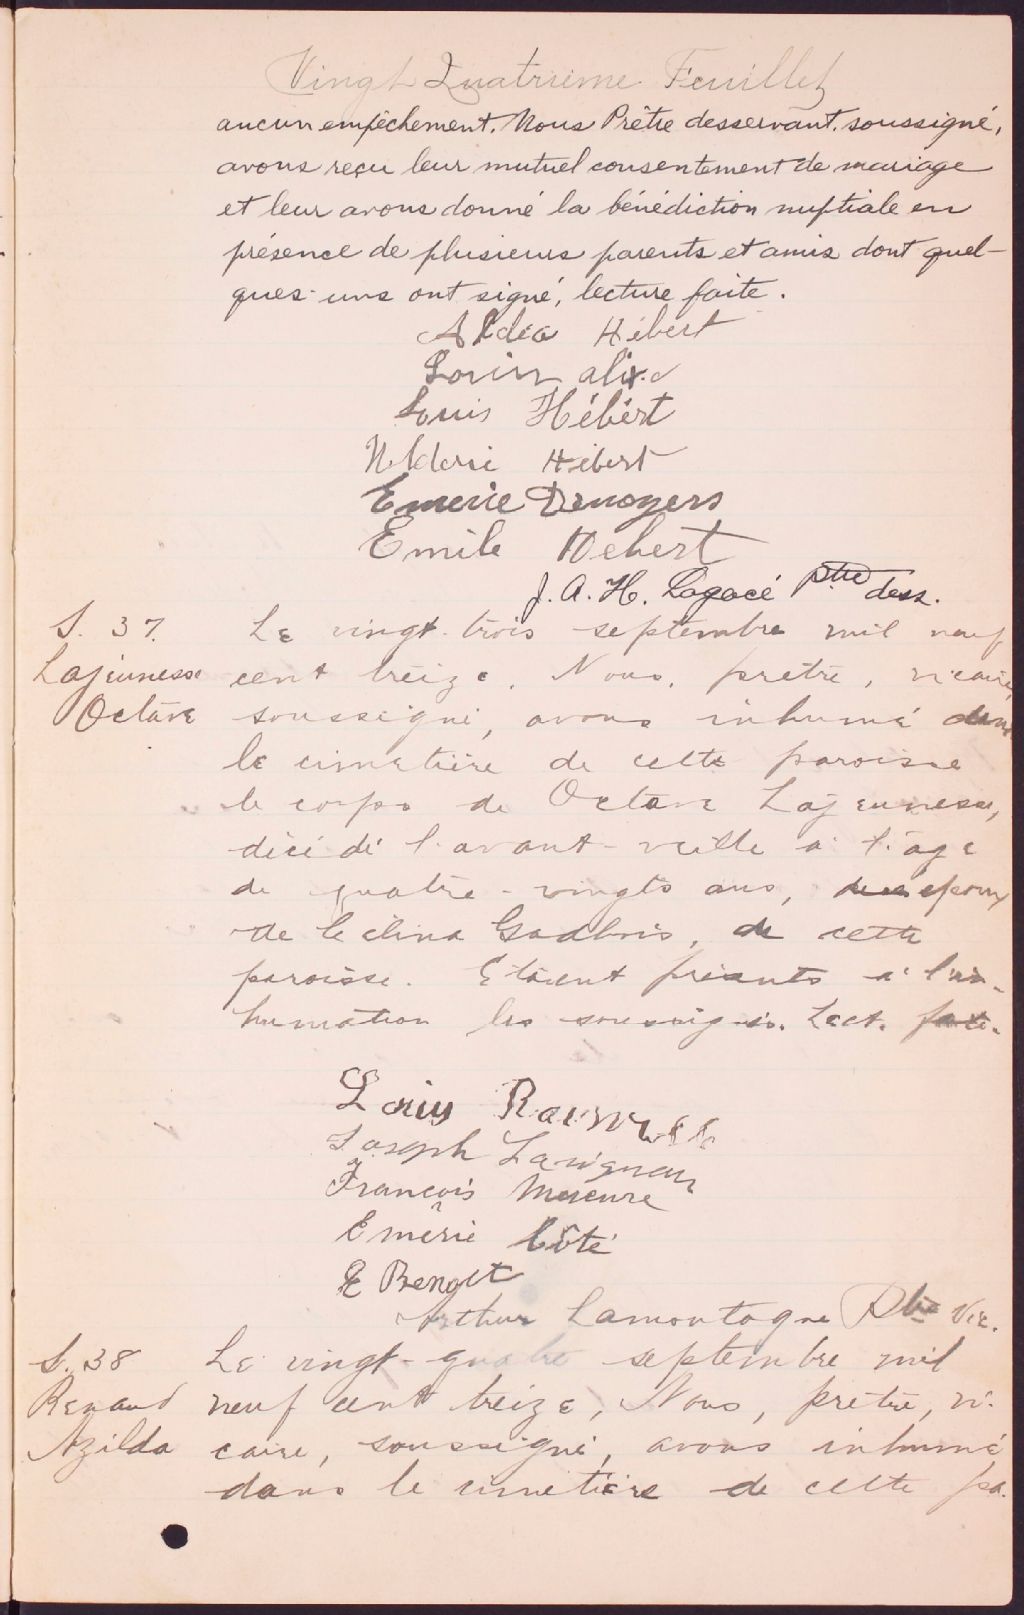 Vingt Quatrième Feuillet
aucun empêchement. Nous Prêtre desservant, soussigné,
avons reçu leur mutuel consentement de mariage
et leur avons donné la bénédiction nuptiale en
présence de plusieurs parents et amis dont quel-
ques-uns ont signé, lecture faite.
Aldea Hébert
alix
Louis Hébért
Hébert
Emerie Denoyers
Emile Hebert
J. A. H. Lagacé ptre dess.
S. 37.
Lajeunesse
Octave
Le vingt-trois septembre mil neuf
cent treize, Nous, prêtre, vicaire,
soussigné, avons inhumé dans
le cimetière de cette paroisse
le corps de Octave Lajeunesse,
décédé l'avant-veille à l'âge
de quatre-vingts ans, époux
de Célina Gadbois, de cette
paroisse. Etaient présents à l'in-
humation les soussignés. Lect. faite.
Louis
Joseph Lavigneur
François Mercure
Emérie Côté
E Benoit
Arthur Lamontagne Ptre Vic.
S. 38
Renaud
Azilda
Le vingt-quatre septembre mil
neuf cent treize, Nous, prêtre, vi-
caire, soussigné, avons inhumé
dans le cimetière de cette pa-